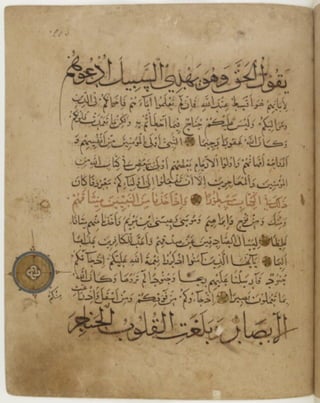 يقول الحق وهو يهدي السبيل ادعوهم
لابائهم هو اقسط عند الله فان لم تعلموا اباءهم فاخوانكم في الدين
ومواليكم وليس عليكم جناح فيما اخطاتم به ولكن ما تعمدت قلوبكم
وكان الله غفورا رحيما النبي اولى بالمؤمنين من انفسهم و
ازواجه امهاتهم واولوا الارحام بعضهم اولى ببعض في كتاب الله من
المؤمنين والمهاجرين الا ان تفعلوا الى اوليائكم معروفا كان
ذلك في الكتاب مسطورا واذ اخذنا من النبيين ميثاقهم
ومنك ومن نوح وابراهيم وموسى وعيسى بن مريم واخذنا منهم ميثاقا
غليظا ليسال الصادقين عن صدقهم واعد للكافرين عذابا
اليما يا ايها الذين امنوا اذكروا نعمة الله عليكم اذ جاءتكم
جنود فارسلنا عليهم ريحا وجنودا لم تروها وكان الله
بما تعملون بصيرا اذ جاؤكم من فوقكم ومن اسفل منكم واذ زاغت
الابصار وبلغت القلوب الحناجر